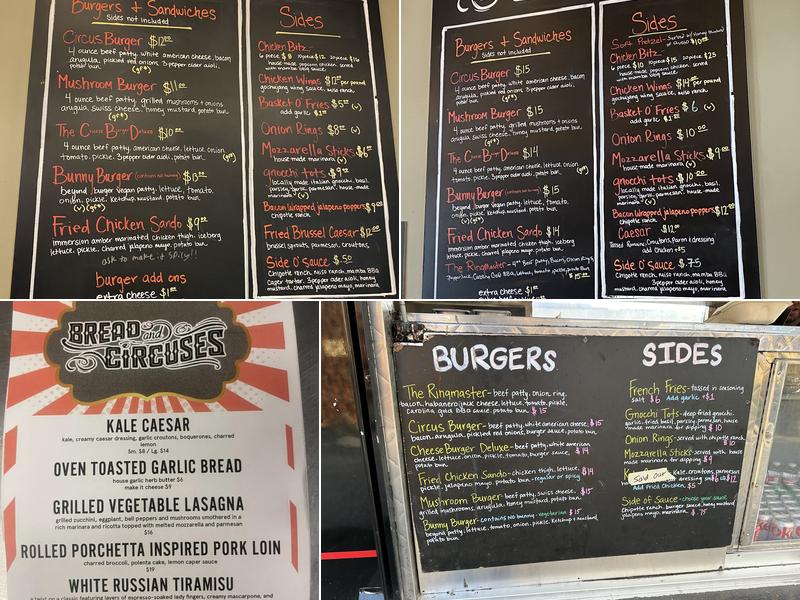 Burgers & Sandwiches
Sides not included
Circus Burger $12.00
4 ounce beef patty, white american cheese, bacon
arugula, pickled red onions, 3 pepper cider aioli,
(gf*)
Mushroom Burger $11.00
4 ounce beef patty, grilled mushrooms + onions
arugula, swiss cheese, honey mustard, potato bun.
(gf*)
The Cheese Burger Deluxe $10
4 ounce beef patty, american cheese, lettuce, onion
tomato, pickle, 3 pepper cider aioli, potato bun. (gf*)
Bunny Burger (contains not bunny) $
beyond burger vegan patty, lettuce, tomato,
onion, pickle, Ketchup, mustard, potato bun.
(v)(gf*)
Fried Chicken Sando $9
immersion amber marinated chicken thigh, iceberg
lettuce, pickle, charred jalapeno mayo, potato bun.
ask to make it spicy!!
burger add ons
extra cheese $1
Sides
Chicken Bitz
6 piece $8 10 piece $12 20 piece $16
house made, popcorn chicken, served
with mamba bbq sauce.
Chicken Wings $12 per pound
gochujang wing sauce, miso ranch.
Basket O' Fries $5 (v)
add garlic $1
Onion Rings $8 (v)
Mozzarella Sticks $6
house made marinara (v)
gnocchi tots $9
locally made italian gnocchi, basil,
parsley, garlic, parmesan, house-made
marinara (v)
Bacon Wrapped jalapeno poppers $9
chipotle ranch
Fried Brussel Caesar $12.00
brussel sprouts, parmesan, croutons,
Side O' Sauce $.50
Chipotle ranch, miso ranch, mamba BBQ
caper tartar, 3 pepper cider aioli, honey
mustard, charred jalapeno mayo, marinara
Burgers & Sandwiches
Sides not included
Circus Burger $15
4 ounce beef patty, white american cheese, bacon
arugula, pickled red onions, 3 pepper cider aioli,
(gf*)
Mushroom Burger $15
4 ounce beef patty, grilled mushrooms + onions
arugula, swiss cheese, honey mustard, potato bun.
(gf*)
The Cheese Burger Deluxe $14
4 ounce beef patty, american cheese, lettuce, onion
tomato, pickle, 3 pepper cider aioli, potato bun. (gf*)
Bunny Burger (contains not bunny) $15
beyond burger vegan patty, lettuce, tomato,
onion, pickle, Ketchup, mustard, potato bun.
(v)(gf*)
Fried Chicken Sando $14
immersion amber marinated chicken thigh, iceberg
lettuce, pickle, charred jalapeno mayo, potato bun.
The Ringmaster - 4oz Beef Patty, Bacon, Onion Ring,
Pepper Jack, Carolina Gold BBQ, Lettuce, tomato, pickle, potato Bun
$15.00
extra cheese
Sides
Soft Pretzel - Served w/ Honey Mustard
or Queso $10
Chicken Bitz
6 piece $10 10 piece $15 20 piece $25
house made, popcorn chicken, served
with mamba bbq sauce.
Chicken Wings $14 per pound
gochujang wing sauce, miso ranch.
Basket O' Fries $6 (v)
add garlic $1
Onion Rings $10.00
Mozzarella Sticks $9.00
house made marinara (v)
gnocchi tots $10.00
locally made italian gnocchi, basil,
parsley, garlic, parmesan, house-made
marinara (v)
Bacon Wrapped jalapeno poppers $12.00
chipotle ranch
Caesar $12.00
Tossed Romaine, Croutons, Parm + dressing
add Chicken +$5
Side O' Sauce $.75
Chipotle ranch, miso ranch, mamba BBQ
3 pepper cider aioli, honey
mustard, charred jalapeno mayo, marinara
BREAD and CIRCUSES
KALE CAESAR
kale, creamy caesar dressing, garlic croutons, boquerones, charred
lemon
Sm. $8 / Lg. $14
OVEN TOASTED GARLIC BREAD
house garlic herb butter $6
make it cheese $9
GRILLED VEGETABLE LASAGNA
grilled zucchini, eggplant, bell peppers and mushrooms smothered in a
rich marinara and ricotta topped with melted mozzarella and parmesan
$16
ROLLED PORCHETTA INSPIRED PORK LOIN
charred broccoli, polenta cake, lemon caper sauce
$19
WHITE RUSSIAN TIRAMISU
a twist on a classic featuring layers of espresso-soaked lady fingers, creamy mascarpone, and
BURGERS
The Ringmaster - beef patty, onion, ring,
bacon, habanero jack cheese, lettuce, tomato, pickle,
carolina gold BBQ sauce, potato bun $15
Circus Burger - beef patty, white american cheese, $15
bacon, arugula, pickled red onions, burger sauce, potato bun
Cheese Burger Deluxe - beef patty, white american
cheese, lettuce, onion, pickle, tomato, burger sauce, $14
potato bun
Fried Chicken Sando - chicken thigh, lettuce, $14
pickle, jalapeno mayo, potato bun - regular or spicy
Mushroom Burger - beef patty, swiss cheese, $15
grilled mushrooms, arugula, honey mustard, potato bun
Bunny Burger - contains no bunny - vegetarian $15
beyond patty, lettuce, tomato, onion, pickle, Ketchup & mustard,
potato bun
SIDES
French Fries - tossed in seasoning
salt $6 Add garlic +$1
Gnocchi Tots - deep fried gnocchi,
garlic, fried basil, parsley, parmesan, house
made marinara for dipping $10
Onion Rings - served with chipotle ranch
$10
Mozzarella Sticks - served with house made
marinara for dipping $9
K Sold out kale, croutons, parmesan
dressing sm $6 LG $12
Add Fried Chicken $5
Side of Sauce - choose your sauce
Chipotle ranch, burger sauce, honey mustard,
jalapeno mayo, marinara $.75